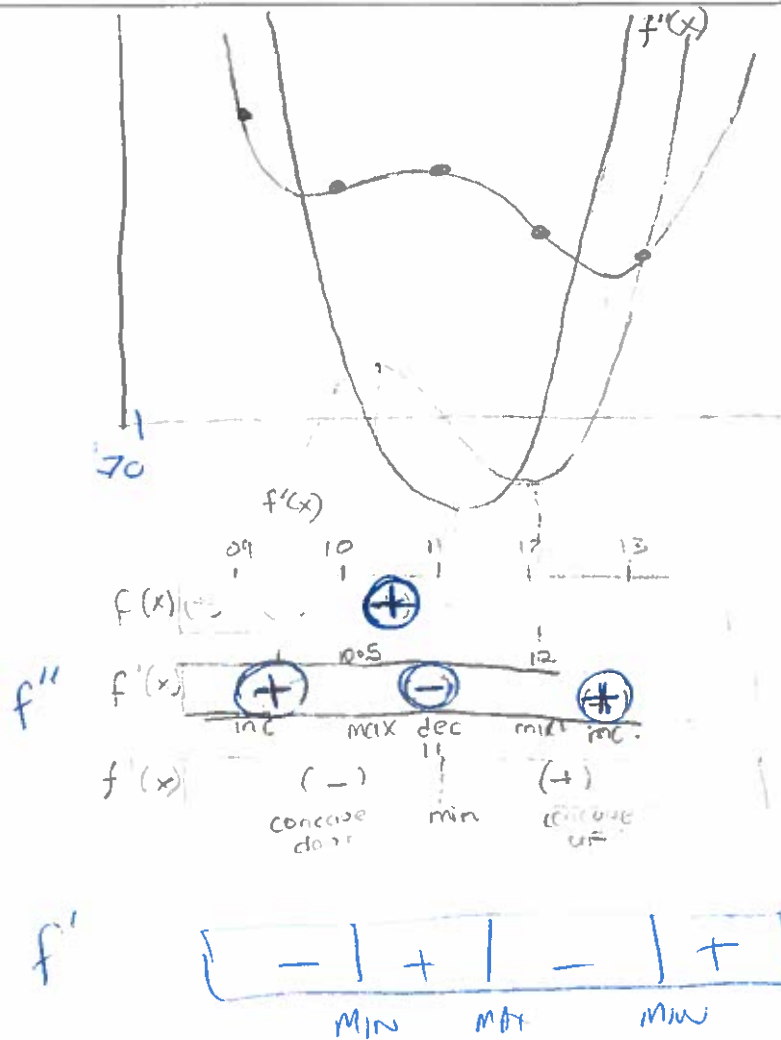 f''(x)
70
f'(x)
09 10 11 12 13
f(x) +
10.5 12
f'' f'(x) + - +
inc max dec min inc.
11
f'(x) (-) (+)
concave min concave
f' - | + | - | +
MIN MAX MIN